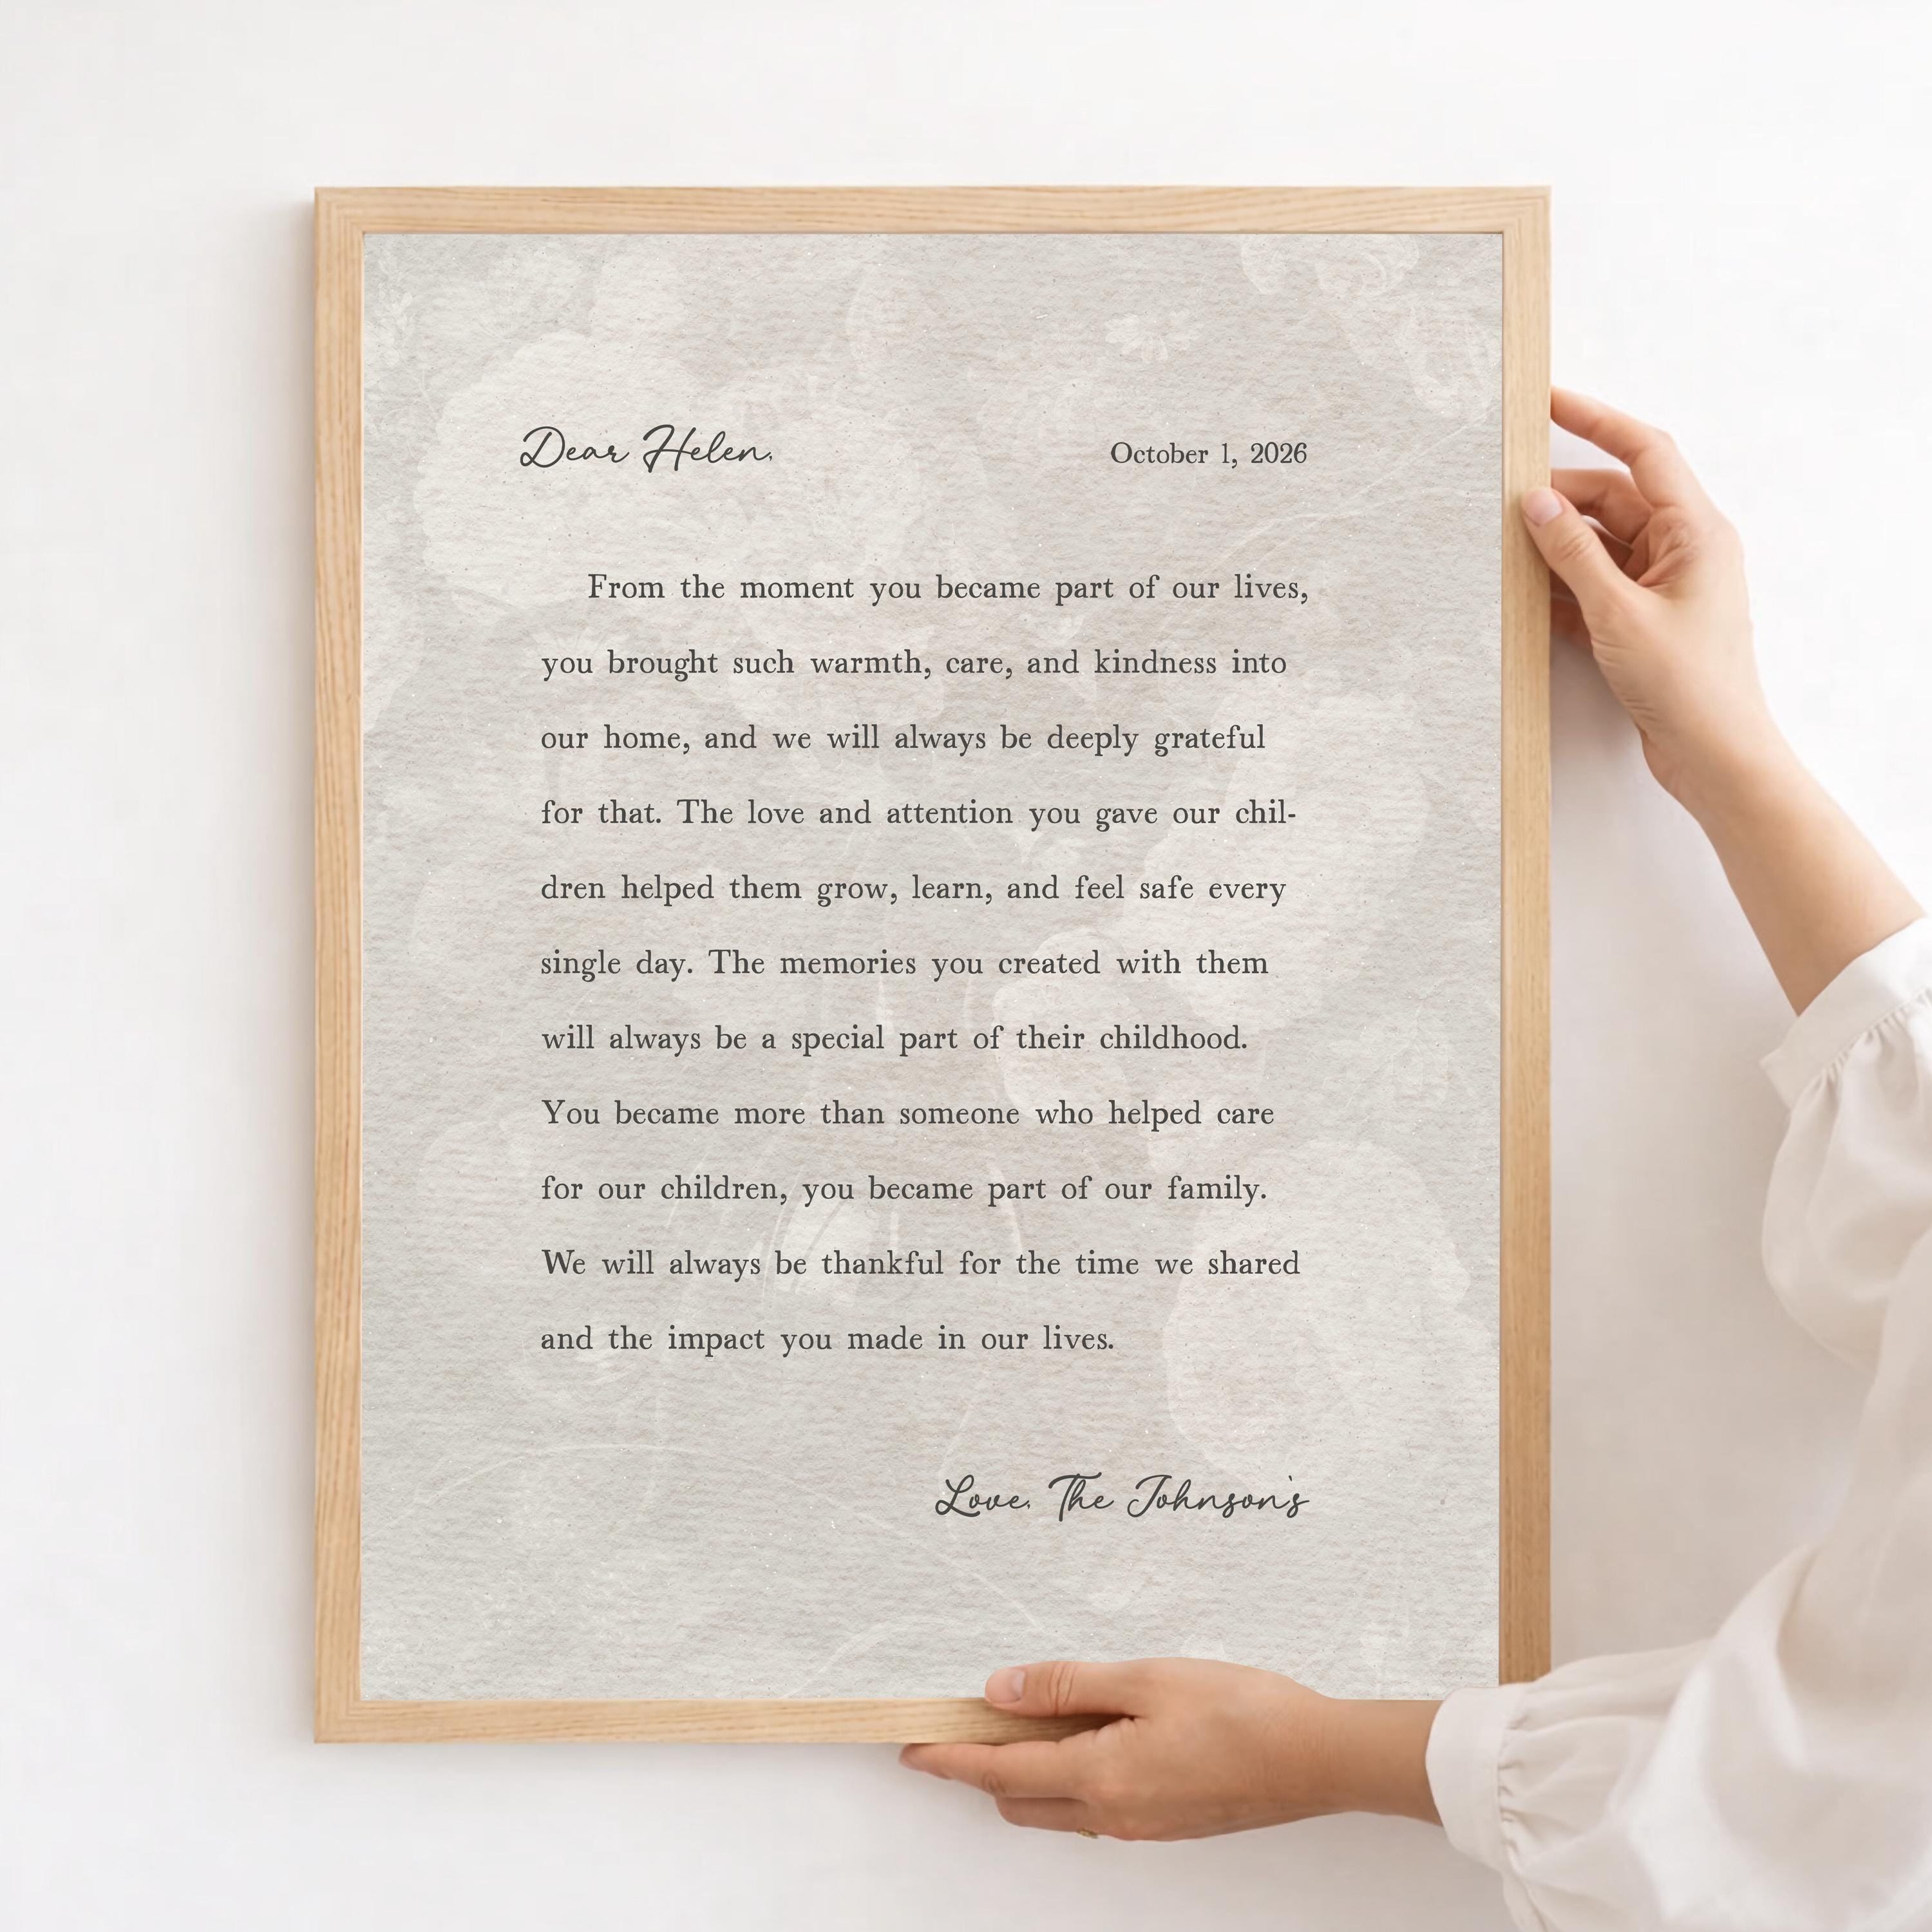 Dear Helen,
October 1, 2026
From the moment you became part of our lives,
you brought such warmth, care, and kindness into
our home, and we will always be deeply grateful
for that. The love and attention you gave our chil-
dren helped them grow, learn, and feel safe every
single day. The memories you created with them
will always be a special part of their childhood.
You became more than someone who helped care
for our children, you became part of our family.
We will always be thankful for the time we shared
and the impact you made in our lives.
Love, The Johnson's